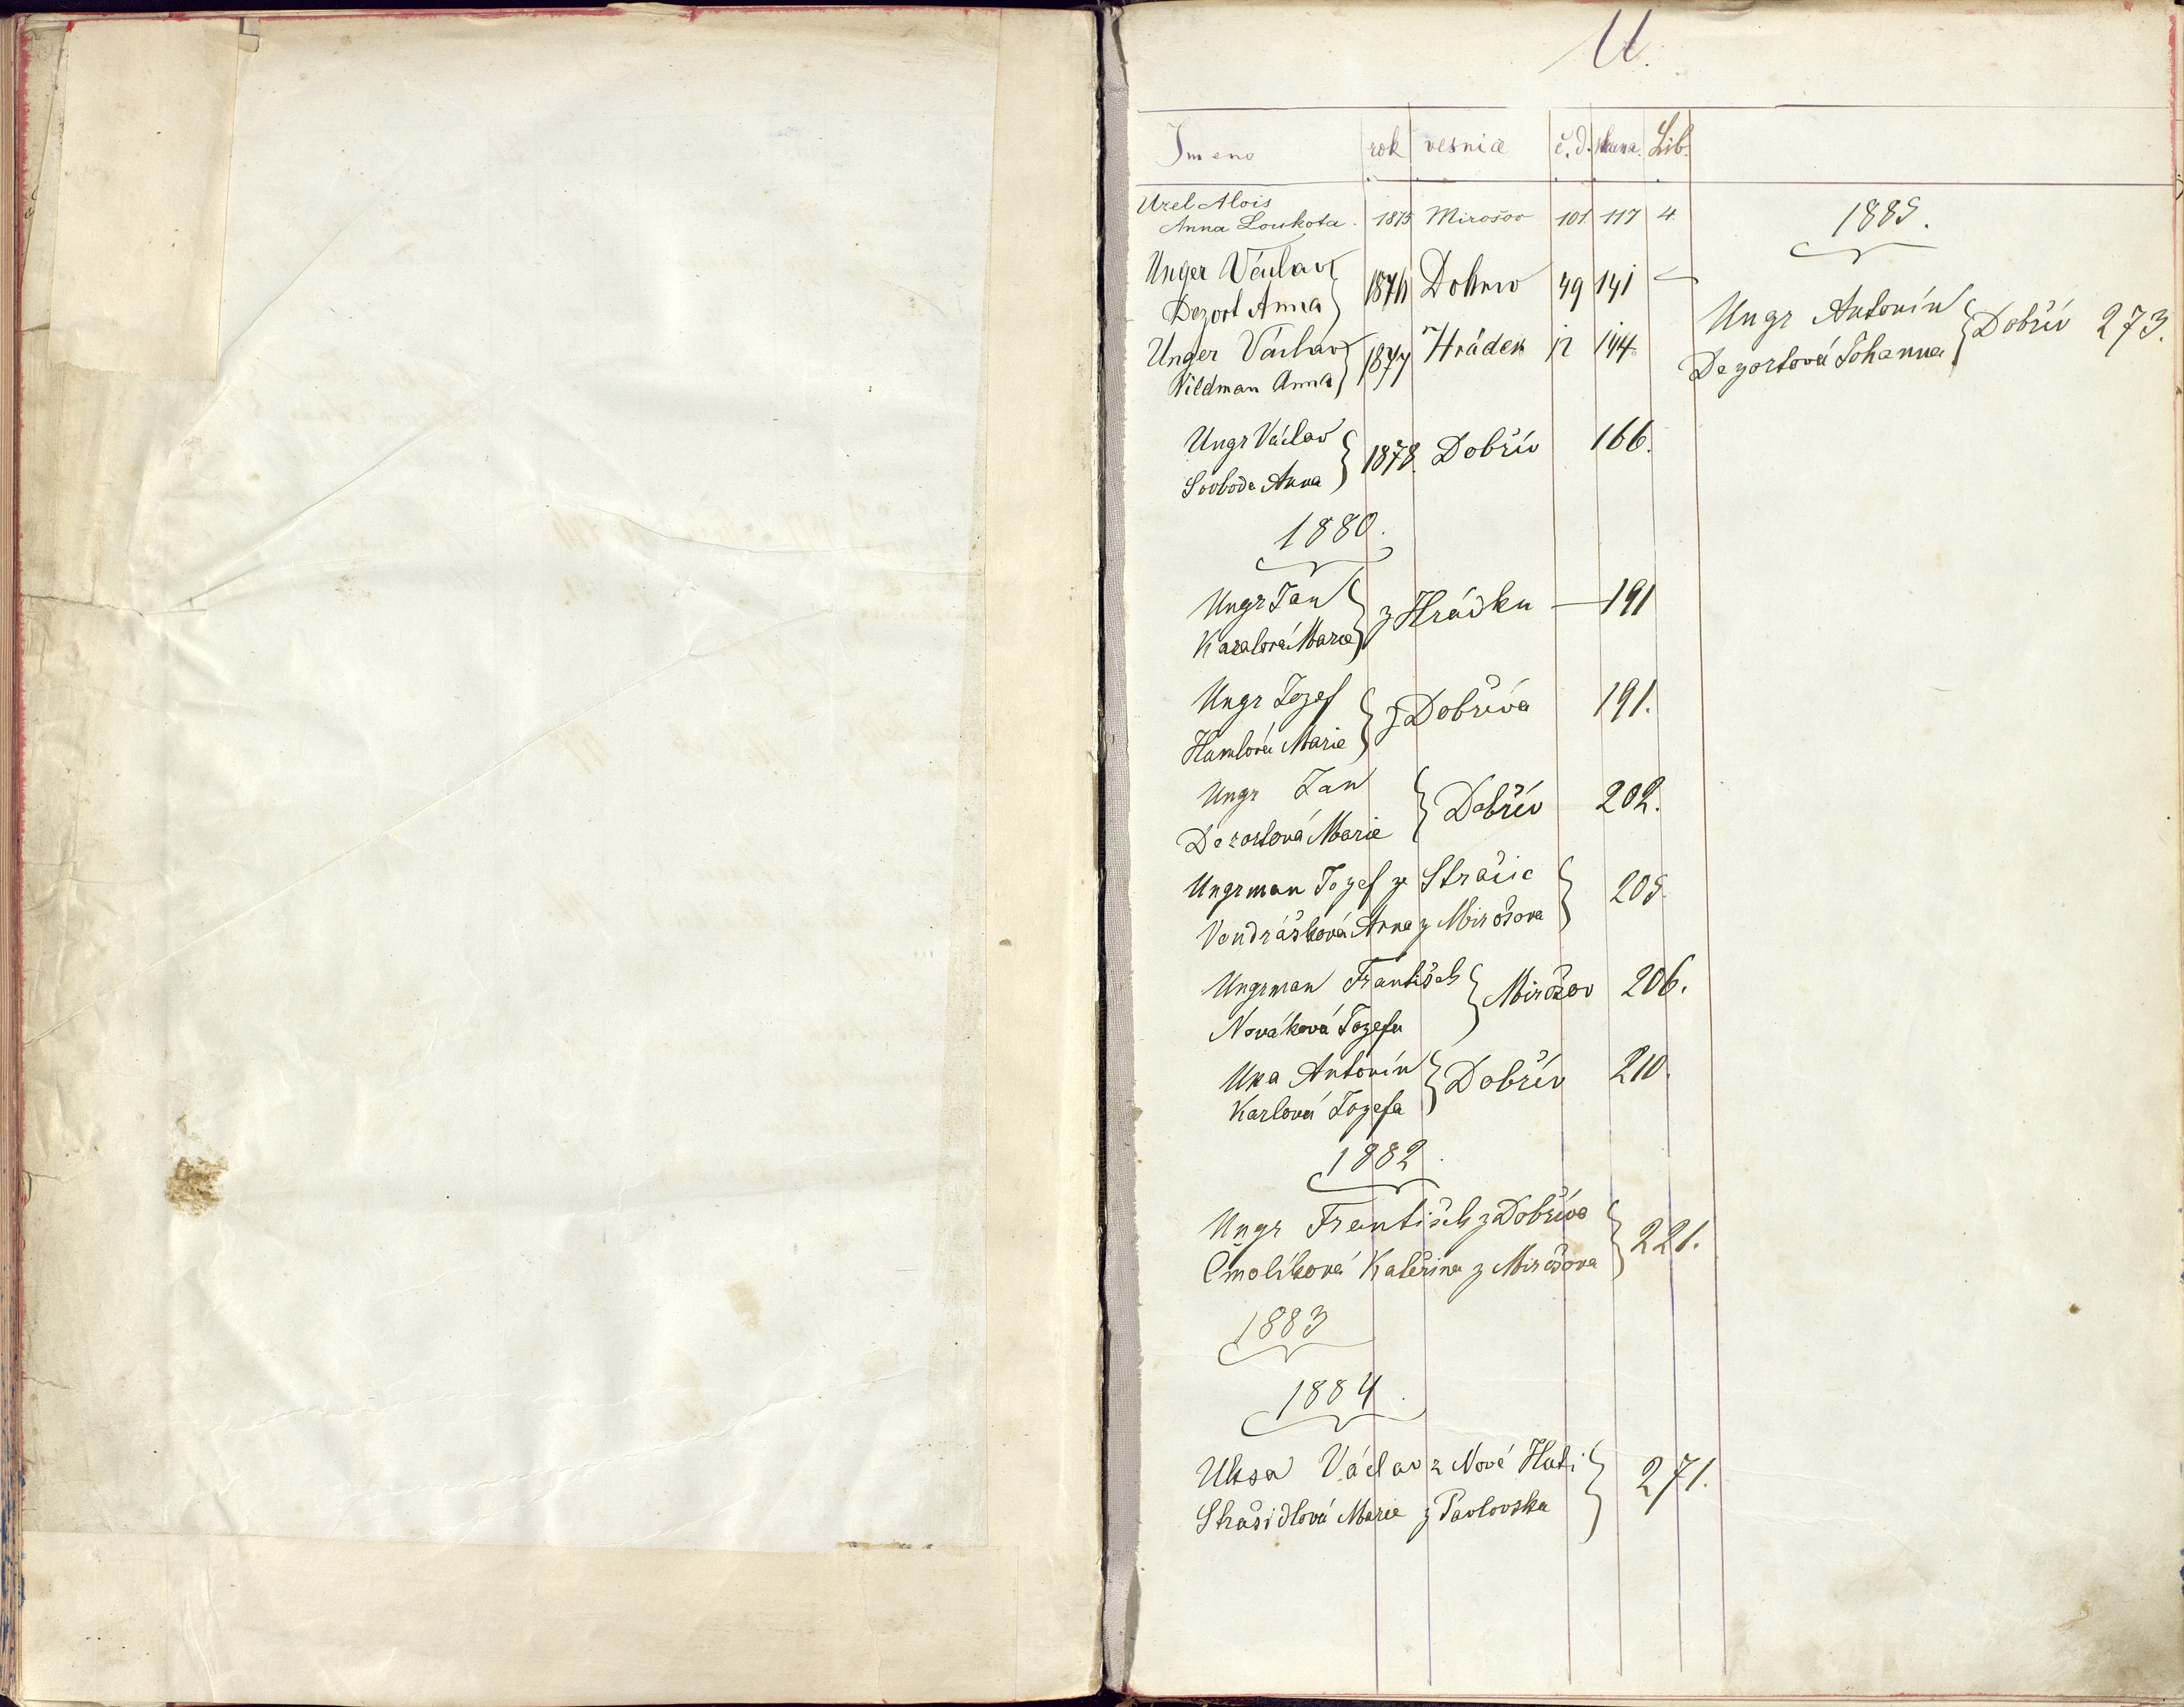 U.
Jmeno rok vesnice č.d. strana Lib.
Uzel Alois
Anna Loukota 1875 Mirošov 101 117 4
Unger Václav
Dezort Anna } 1876 Dobřiv 49 141
Unger Václav
Vildman Anna } 1877 Hrádek 12 144.
Ungr Václav
Svoboda Anna } 1878. Dobřív 166.
1880.
Ungr Jan
Marie } z Hrádku — 191
Ungr Jozef
Hamlová Marie } z Dobříva 191.
Ungr Jan
Dezortová Marie } Dobřív 202.
Ungrman Jozef ze Strašic
Vondrášková Anna z Mirošova } 205.
Ungrman František
Nováková Jozefa } Mirošov 206.
Antonín
Karlová Jozefa } Dobřív 210.
1882.
Ungr František z Dobříva
Čmolíková Kateřina z Mirošova } 221.
1883
1884.
Uksa Václav z Nové Huti
Strašidlová Marie z Pavlovska } 271.
1885.
Ungr Antonín
Dezortová Johanna } Dobřív 273.